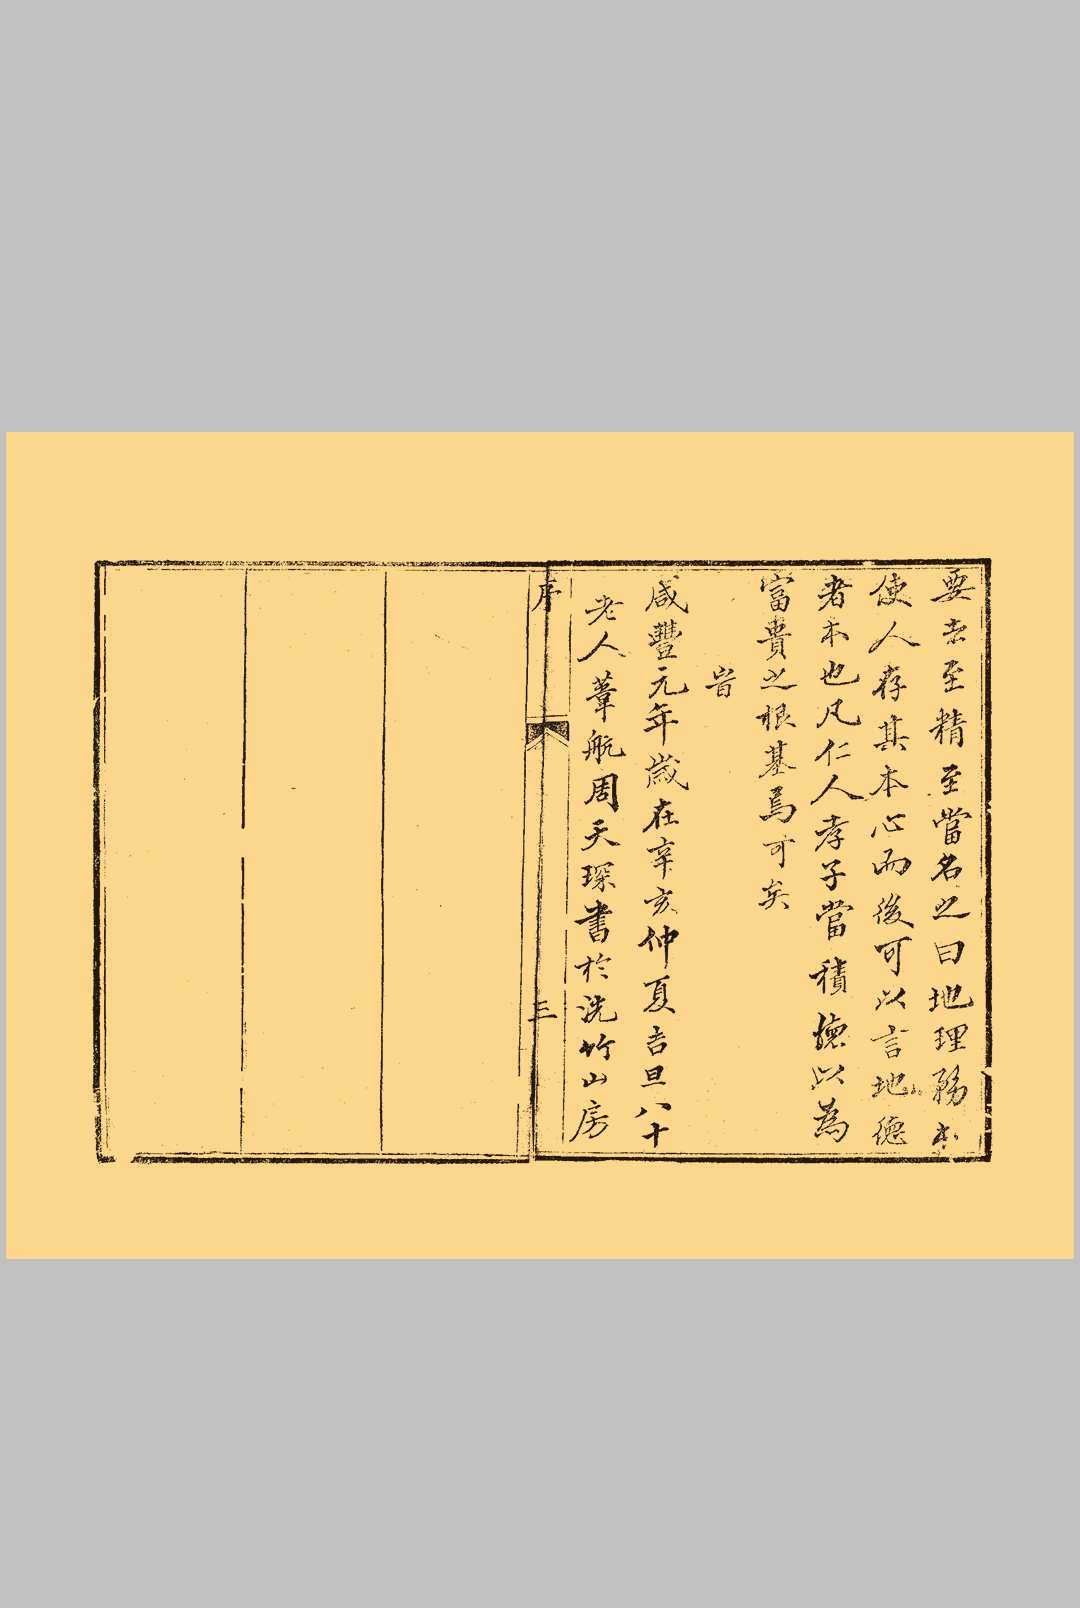 要至精至當名之曰地理務本
使人存其本心而後可以言地德
者本也凡仁人孝子當積德以為
富貴之根基焉可矣
旹
咸豐元年歲在辛亥仲夏吉旦八十
老人葦航周天琛書於洗竹山房
序 三